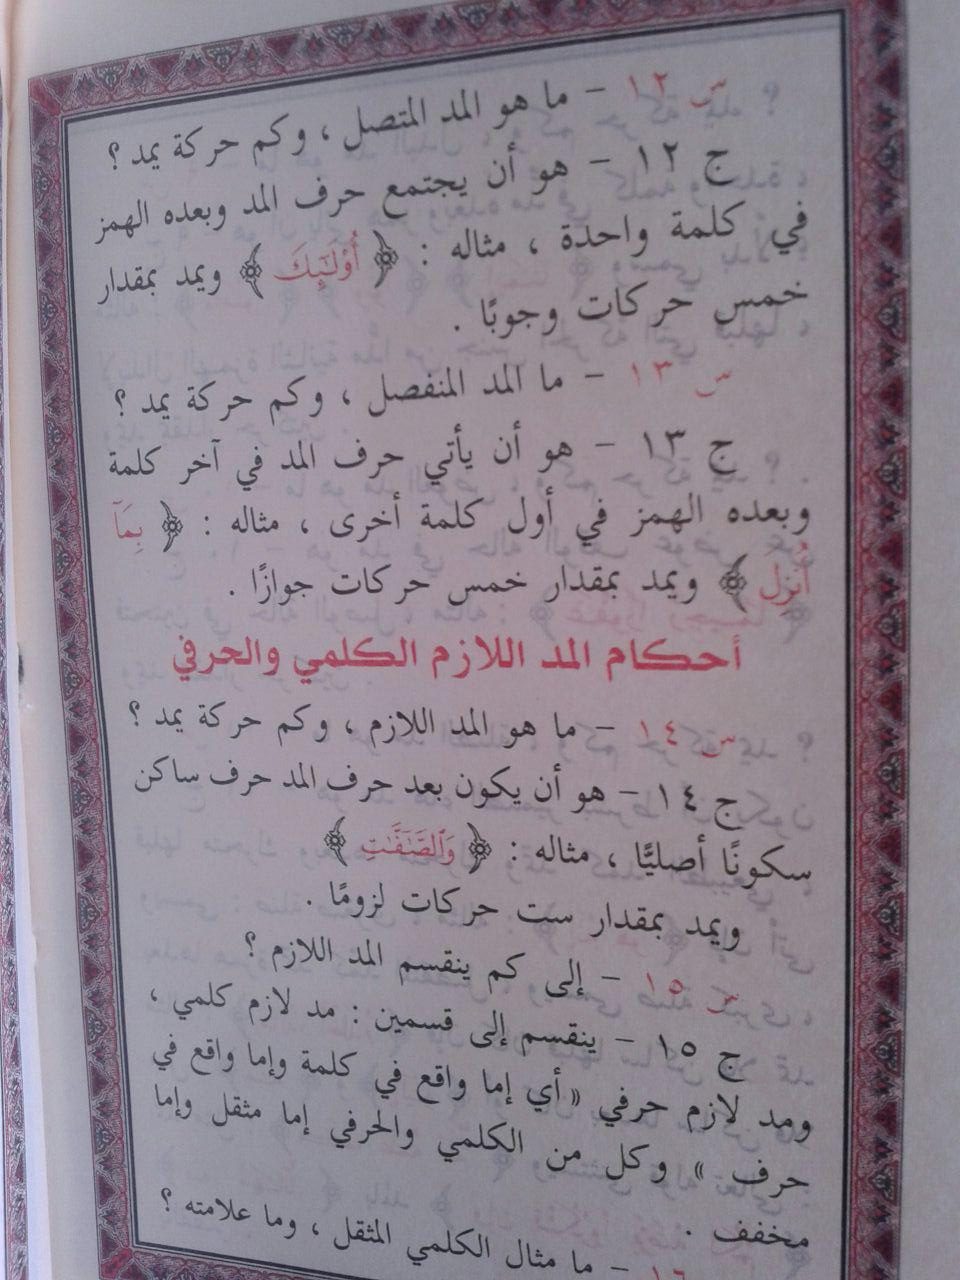 س ١٢ - ما هو المد المتصل ، وكم حركة يمد ؟
ج ١٢ - هو أن يجتمع حرف المد وبعده الهمز
في كلمة واحدة ، مثاله : ﴿ أُوْلَـٰٓئِكَ ﴾ ويمد بمقدار
خمس حركات وجوبًا .
س ١٣ - ما المد المنفصل ، وكم حركة يمد ؟
ج ١٣ - هو أن يأتي حرف المد في آخر كلمة
وبعده الهمز في أول كلمة أخرى ، مثاله : ﴿ بِمَآ
أُنزِلَ ﴾ ويمد بمقدار خمس حركات جوازًا .
أحكام المد اللازم الكلمي والحرفي
س ١٤ - ما هو المد اللازم ، وكم حركة يمد ؟
ج ١٤ - هو أن يكون بعد حرف المد حرف ساكن
سكونًا أصليًّا ، مثاله : ﴿ وَٱلصَّـٰٓفَّـٰتِ ﴾
ويمد بمقدار ست حركات لزومًا .
س ١٥ - إلى كم ينقسم المد اللازم ؟
ج ١٥ - ينقسم إلى قسمين : مد لازم كلمي ،
ومد لازم حرفي « أي إما واقع في كلمة وإما واقع في
حرف » وكل من الكلمي والحرفي إما مثقل وإما
مخفف .
١٦ - ما مثال الكلمي المثقل ، وما علامته ؟